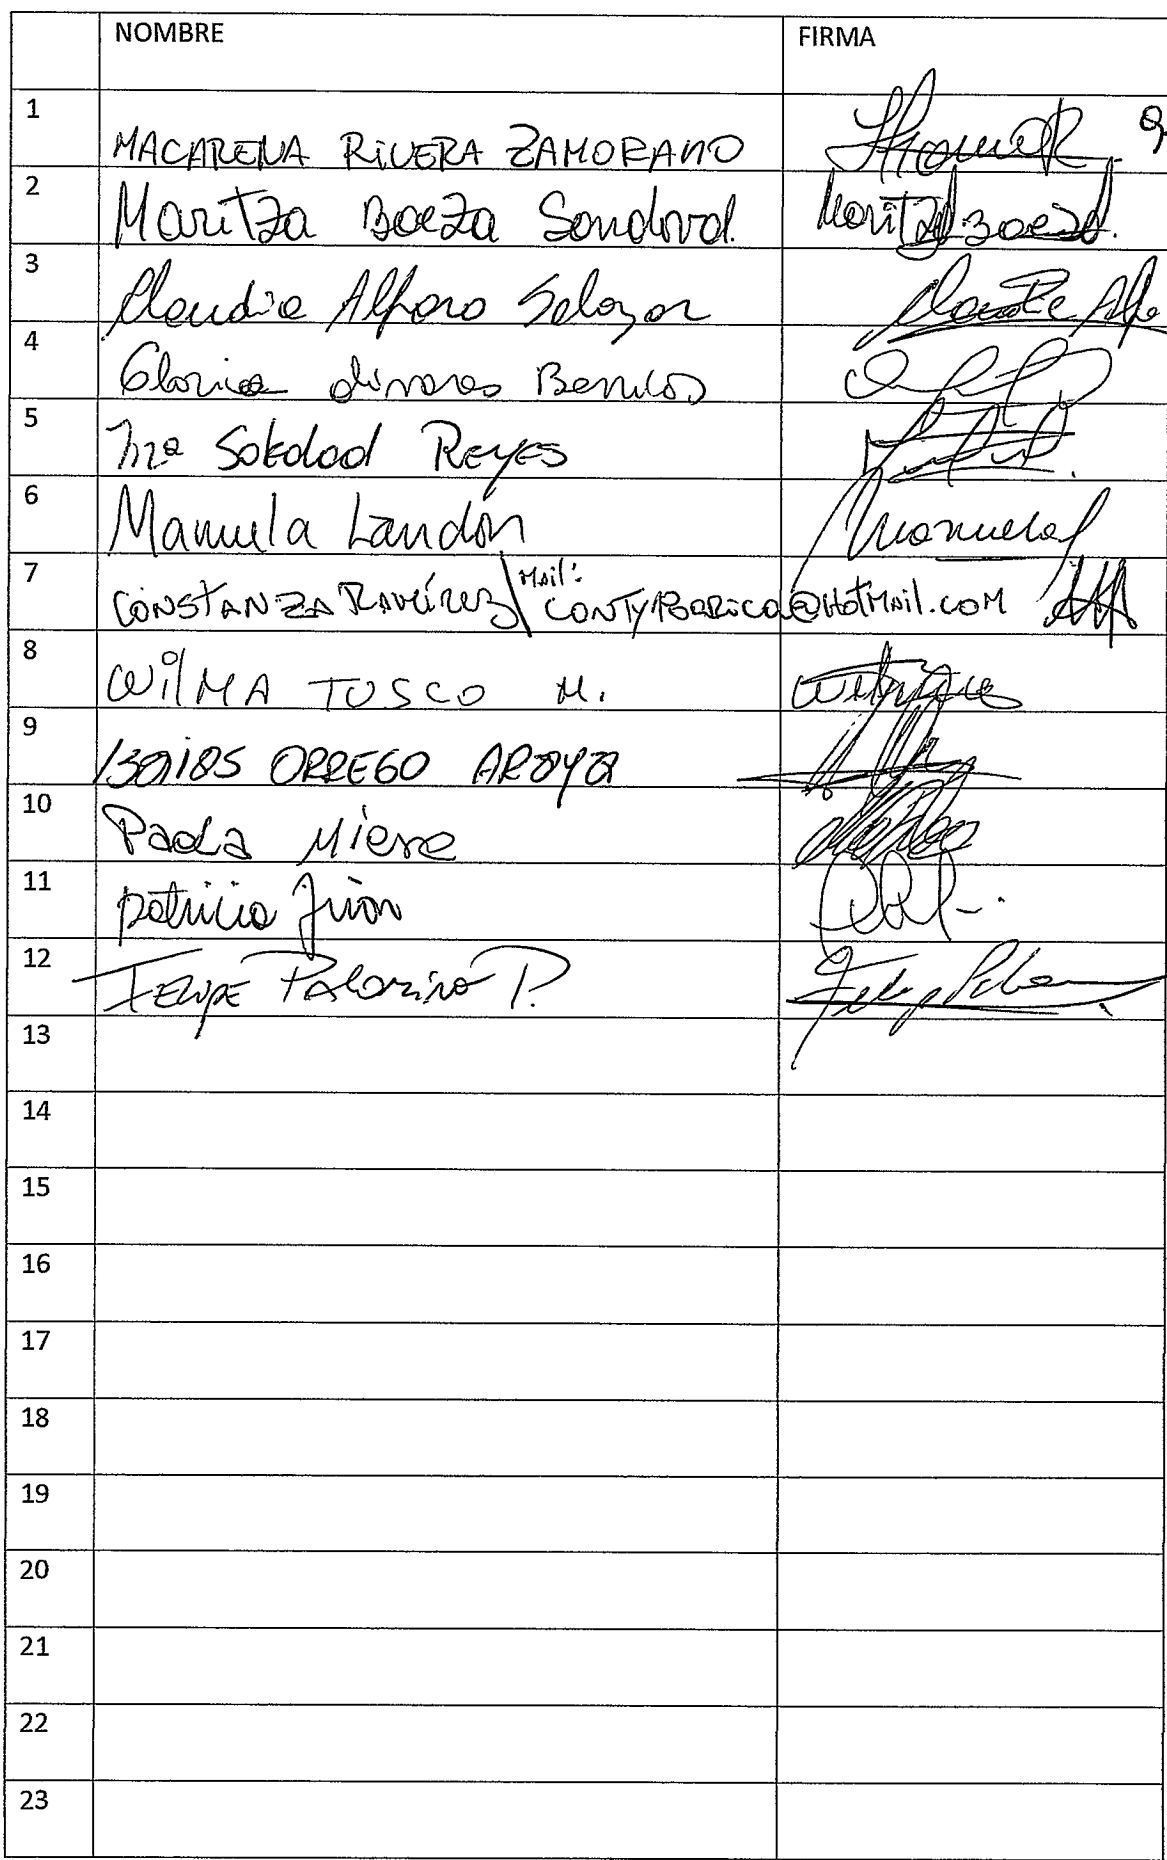 NOMBRE FIRMA
1 MACARENA RIVERA ZAMORANO
2 Maritza Baeza Sandoval. Maritza Baeza S.
3 Claudia Alfaro Salazar Claudia Alfa
4 Gloria Linares
5 Mª Soledad Reyes
6 Manuela Landon Manuela
7 CONSTANZA RAMÍREZ / Mail: @HOTMAIL.COM
8 WILMA TUSCO M.
9 ISAIAS ORREGO AROYA
10 Paola Miere
11 Patricia
12 FELIPE PALOMINO P.
13
14
15
16
17
18
19
20
21
22
23